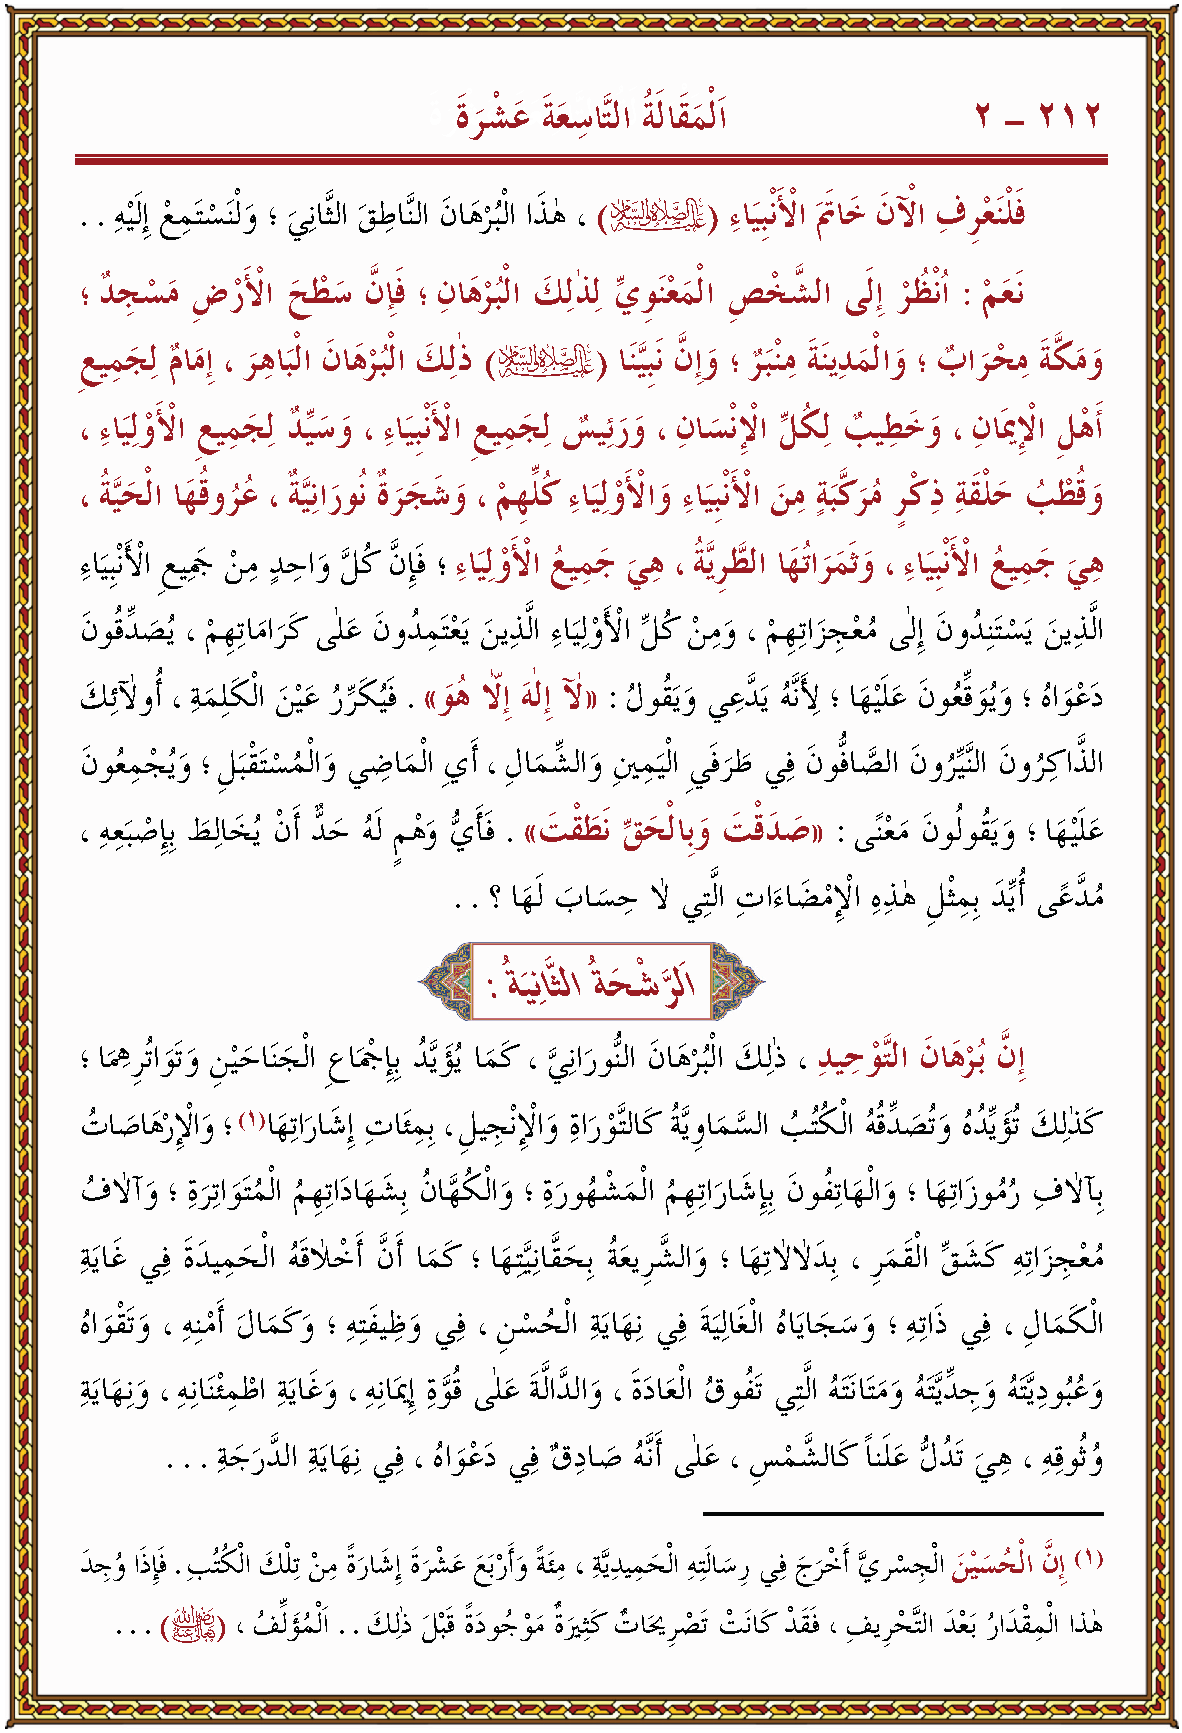 ٢١٢ – ٢ اَلْمَقَالَةُ التَّاسِعَةَ عَشْرَةَ
فَلْنَعْرِفِ الْآنَ خَاتَمَ الْأَنْبِيَاءِ (عليه الصلاة والسلام) ، هٰذَا الْبُرْهَانَ النَّاطِقَ الثَّانِيَ ؛ وَلْنَسْتَمِعْ إِلَيْهِ . .
نَعَمْ : اُنْظُرْ إِلَى الشَّخْصِ الْمَعْنَوِيِّ لِذٰلِكَ الْبُرْهَانِ ؛ فَإِنَّ سَطْحَ الْأَرْضِ مَسْجِدٌ ؛
وَمَكَّةَ مِحْرَابٌ ؛ وَالْمَدِينَةَ مِنْبَرٌ ؛ وَإِنَّ نَبِيَّنَا (عليه الصلاة والسلام) ذٰلِكَ الْبُرْهَانَ الْبَاهِرَ ، إِمَامٌ لِجَمِيعِ
أَهْلِ الْإِيمَانِ ، وَخَطِيبٌ لِكُلِّ الْإِنْسَانِ ، وَرَئِيسٌ لِجَمِيعِ الْأَنْبِيَاءِ ، وَسَيِّدٌ لِجَمِيعِ الْأَوْلِيَاءِ ،
وَقُطْبُ حَلْقَةِ ذِكْرٍ مُرَكَّبَةٍ مِنَ الْأَنْبِيَاءِ وَالْأَوْلِيَاءِ كُلِّهِمْ ، وَشَجَرَةٌ نُورَانِيَّةٌ ، عُرُوقُهَا الْحَيَّةُ ،
هِيَ جَمِيعُ الْأَنْبِيَاءِ ، وَثَمَرَتُهَا الطَّرِيَّةُ ، هِيَ جَمِيعُ الْأَوْلِيَاءِ ؛ فَإِنَّ كُلَّ وَاحِدٍ مِنْ جَمِيعِ الْأَنْبِيَاءِ
الَّذِينَ يَسْتَنِدُونَ إِلٰى مُعْجِزَاتِهِمْ ، وَمِنْ كُلِّ الْأَوْلِيَاءِ الَّذِينَ يَعْتَمِدُونَ عَلٰى كَرَامَاتِهِمْ ، يُصَدِّقُونَ
دَعْوَاهُ ؛ وَيُوَقِّعُونَ عَلَيْهَا ؛ لِأَنَّهُ يَدَّعِي وَيَقُولُ : «لٰآ إِلٰهَ إِلّٰا هُوَ» . فَيُكَرِّرُ عَيْنَ الْكَلِمَةِ ، أُولٰٓئِكَ
الذَّاكِرُونَ النَّيِّرُونَ الصَّافُّونَ فِي طَرَفَيِ الْيَمِينِ وَالشِّمَالِ ، أَيِ الْمَاضِي وَالْمُسْتَقْبَلِ ؛ وَيُجْمِعُونَ
عَلَيْهَا ؛ وَيَقُولُونَ مَعْنًى : «صَدَقْتَ وَبِالْحَقِّ نَطَقْتَ» . فَأَيُّ وَهْمٍ لَهُ حَدٌّ أَنْ يُخَالِطَ بِإِصْبَعِهِ ،
مُدَّعًى أُيِّدَ بِمِثْلِ هٰذِهِ الْإِمْضَاءَاتِ الَّتِي لَا حِسَابَ لَهَا ؟ . .
اَلرَّشْحَةُ الثَّانِيَةُ :
إِنَّ بُرْهَانَ التَّوْحِيدِ ، ذٰلِكَ الْبُرْهَانَ النُّورَانِيَّ ، كَمَا يُؤَيَّدُ بِإِجْمَاعِ الْجَنَاحَيْنِ وَتَوَاتُرِهِمَا ؛
كَذٰلِكَ تُؤَيِّدُهُ وَتُصَدِّقُهُ الْكُتُبُ السَّمَاوِيَّةُ كَالتَّوْرَاةِ وَالْإِنْجِيلِ ، بِمِئَاتِ إِشَارَاتِهَا(١) ؛ وَالْإِرْهَاصَاتُ
بِآلَافِ رُمُوزَاتِهَا ؛ وَالْهَاتِفُونَ بِإِشَارَاتِهِمُ الْمَشْهُورَةِ ؛ وَالْكُهَّانُ بِشَهَادَاتِهِمُ الْمُتَوَاتِرَةِ ؛ وَآلَافُ
مُعْجِزَاتِهِ كَشَقِّ الْقَمَرِ ، بِدَلَالَاتِهَا ؛ وَالشَّرِيعَةُ بِحَقَّانِيَّتِهَا ؛ كَمَا أَنَّ أَخْلَاقَهُ الْحَمِيدَةَ فِي غَايَةِ
الْكَمَالِ ، فِي ذَاتِهِ ؛ وَسَجَايَاهُ الْغَالِيَةَ فِي نِهَايَةِ الْحُسْنِ ، فِي وَظِيفَتِهِ ؛ وَكَمَالَ أَمْنِهِ ، وَتَقْوَاهُ
وَعُبُودِيَّتَهُ وَجِدِّيَّتَهُ وَمَتَانَتَهُ الَّتِي تَفُوقُ الْعَادَةَ ، وَالدَّالَّةَ عَلٰى قُوَّةِ إِيمَانِهِ ، وَغَايَةِ اطْمِئْنَانِهِ ، وَنِهَايَةِ
وُثُوقِهِ ، هِيَ تَدُلُّ عَلَناً كَالشَّمْسِ ، عَلٰى أَنَّهُ صَادِقٌ فِي دَعْوَاهُ ، فِي نِهَايَةِ الدَّرَجَةِ . . .
(١) إِنَّ الْحُسَيْنَ الْجِسْرِيَّ أَخْرَجَ فِي رِسَالَتِهِ الْحَمِيدِيَّةِ ، مِئَةً وَأَرْبَعَ عَشْرَةَ إِشَارَةً مِنْ تِلْكَ الْكُتُبِ . فَإِذَا وُجِدَ
هٰذَا الْمِقْدَارُ بَعْدَ التَّحْرِيفِ ، فَقَدْ كَانَتْ تَصْرِيحَاتٌ كَثِيرَةٌ مَوْجُودَةً قَبْلَ ذٰلِكَ . . اَلْمُؤَلِّفُ ، (رضي الله تعالى عنه) . . .